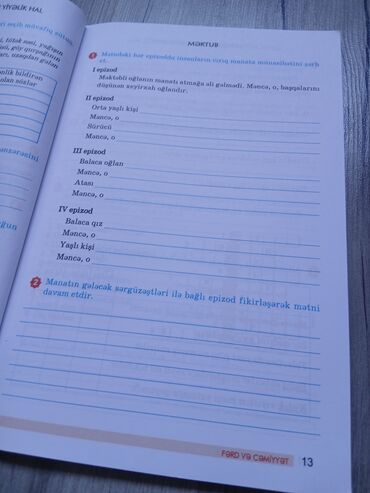 YİYƏLİK HAL
MƏKTUB
1 Mətndəki hər epizodda insanların cırıq manata münasibətini şərh
et.
I epizod
Məktəbli oğlanın manatı atmağa əli gəlmədi. Məncə, o, başqalarını
düşünən xeyirxah oğlandır.
II epizod
Orta yaşlı kişi
Məncə, o
Sürücü
Məncə, o
III epizod
Balaca oğlan
Məncə, o
Atası
Məncə, o
IV epizod
Balaca qız
Məncə, o
Yaşlı kişi
Məncə, o
2 Manatın gələcək sərgüzəştləri ilə bağlı epizod fikirləşərək mətni
davam etdir.
FƏRD VƏ CƏMİYYƏT 13